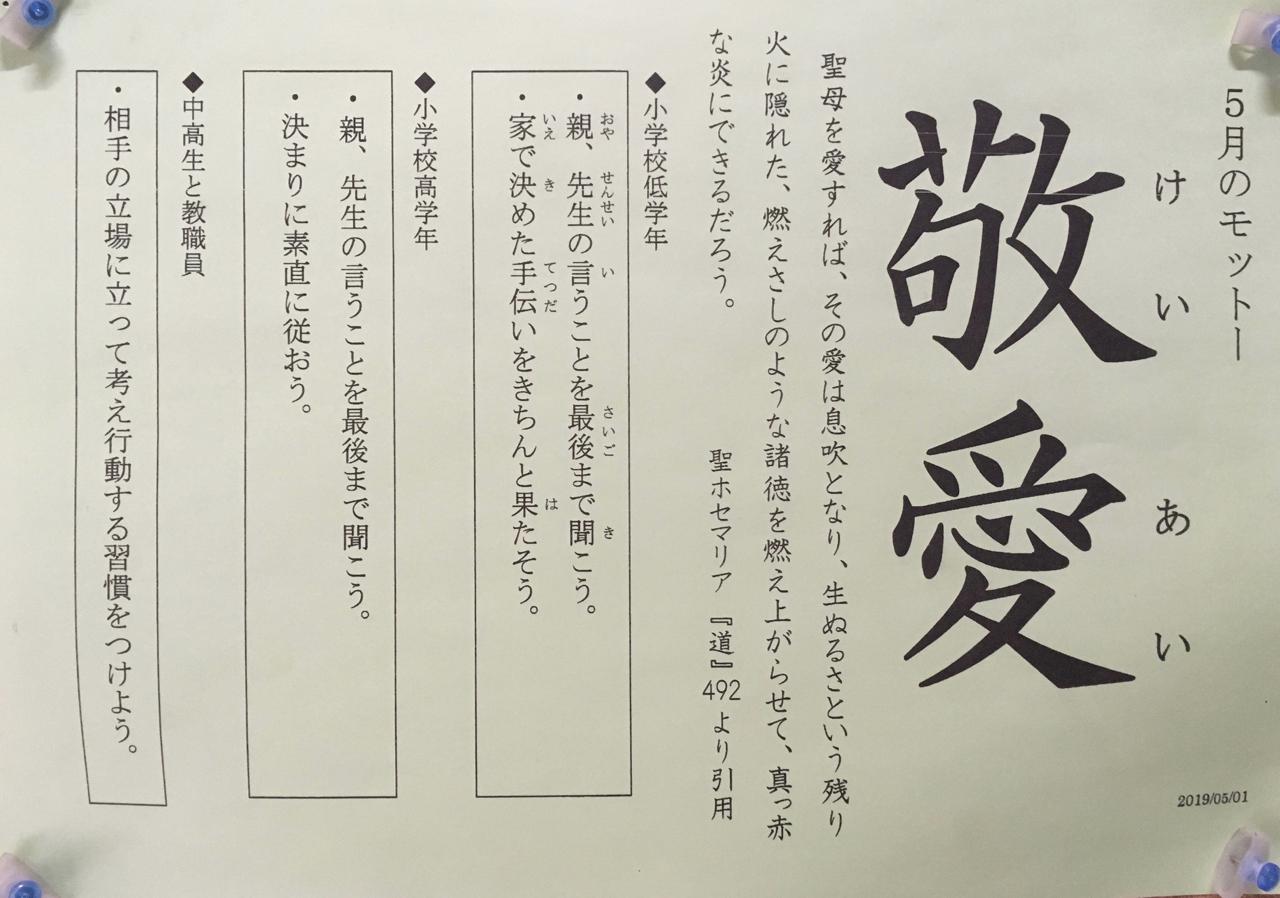 5月のモットー
けいあい
敬愛
2019/05/01
聖母を愛すれば、その愛は息吹となり、生ぬるさという残り
火に隠れた、燃えさしのような諸徳を燃え上がらせて、真っ赤
な炎にできるだろう。
聖ホセマリア 『道』492より引用
◆小学校低学年
・親、先生の言うことを最後まで聞こう。
おや せんせい い さいご き
・家で決めた手伝いをきちんと果たそう。
いえ き てつだ は
◆小学校高学年
・親、先生の言うことを最後まで聞こう。
・決まりに素直に従おう。
◆中高生と教職員
・相手の立場に立って考え行動する習慣をつけよう。